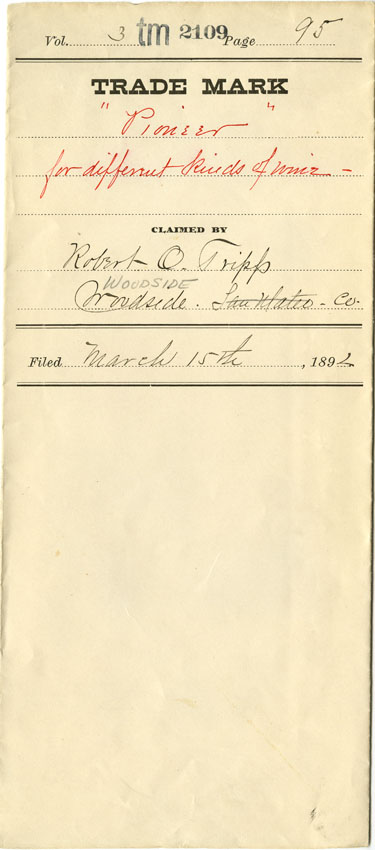 Vol. 3 tm 2109 Page 95
TRADE MARK
"Pioneer"
for different kinds of wine -
CLAIMED BY
Robert O. Tripp
WOODSIDE
Woodside. San Mateo - Co.
Filed March 15th, 1892